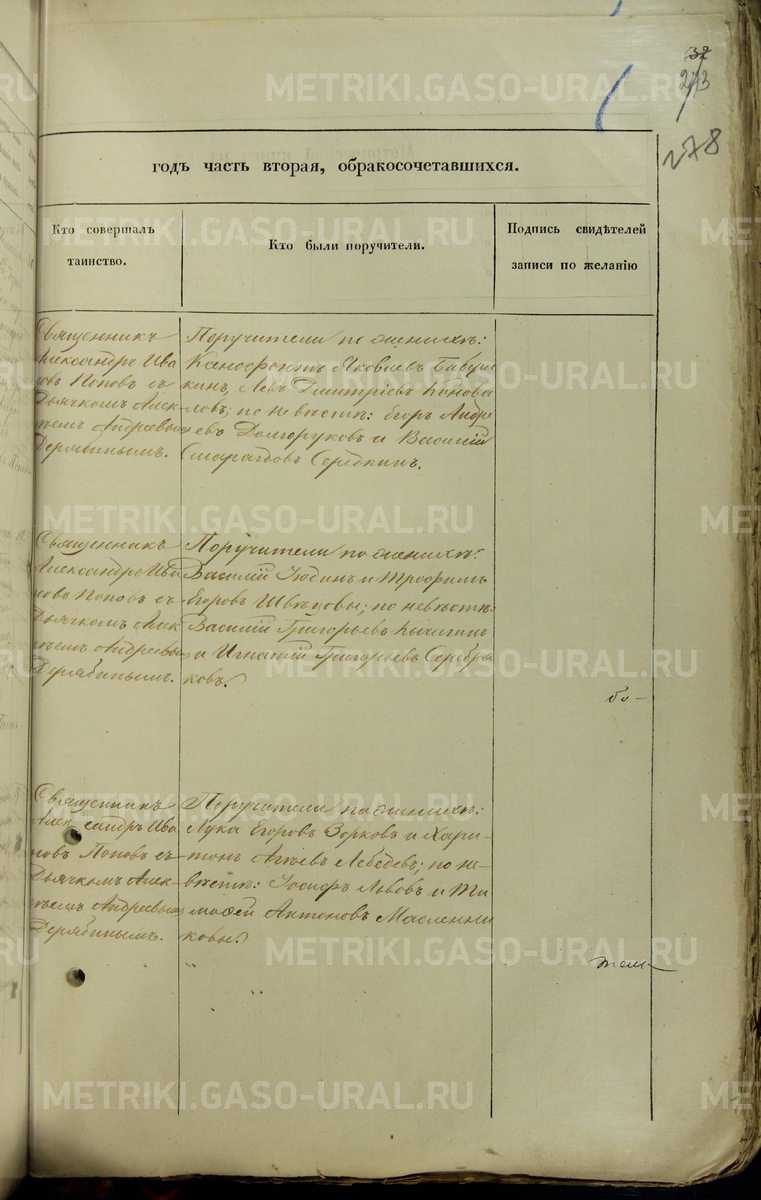 32
273
278
годъ часть вторая, обракосочетавшихся.
Кто совершалъ
таинство.
Кто были поручители.
Подпись свидѣтелей
записи по желанію
Священникъ
Александръ Ива
новъ Поповъ съ
Дьячкомъ Алек-
сѣемъ Андреевым
Дерябинымъ.
Поручители по женихѣ:
Ксенофонтъ Яковлевъ Бабуш
кинъ, Левъ Дмитріевъ Конова
ловъ; по невѣстѣ: Егоръ Андре
евъ Долгоруковъ и Василій
Смарагдовъ Середкинъ.
Священникъ
Александръ Ива
новъ Поповъ съ
Дьячкомъ Алек
сѣемъ Андреевы
Дерябинымъ.
Поручители по женихѣ:
Василій Іюдинъ и Трофимъ
Егоровъ Швецовы; по невѣстѣ:
Василій Григорьевъ Кычигинъ
и Игнатій Григорьевъ Серебря
ковъ.
Священникъ
Александръ Ива
новъ Поповъ съ
Дьячкомъ Алек-
сѣемъ Андреевым
Дерябинымъ.
Поручители по женихѣ:
Лука Егоровъ Зорковъ и Хари-
тонъ Агѣевъ Лебедевъ; по не-
вѣстѣ: Іосифъ Львовъ и Ти
мофей Антоновъ Масленни
ковы.
METRIKI.GASO-URAL.RU